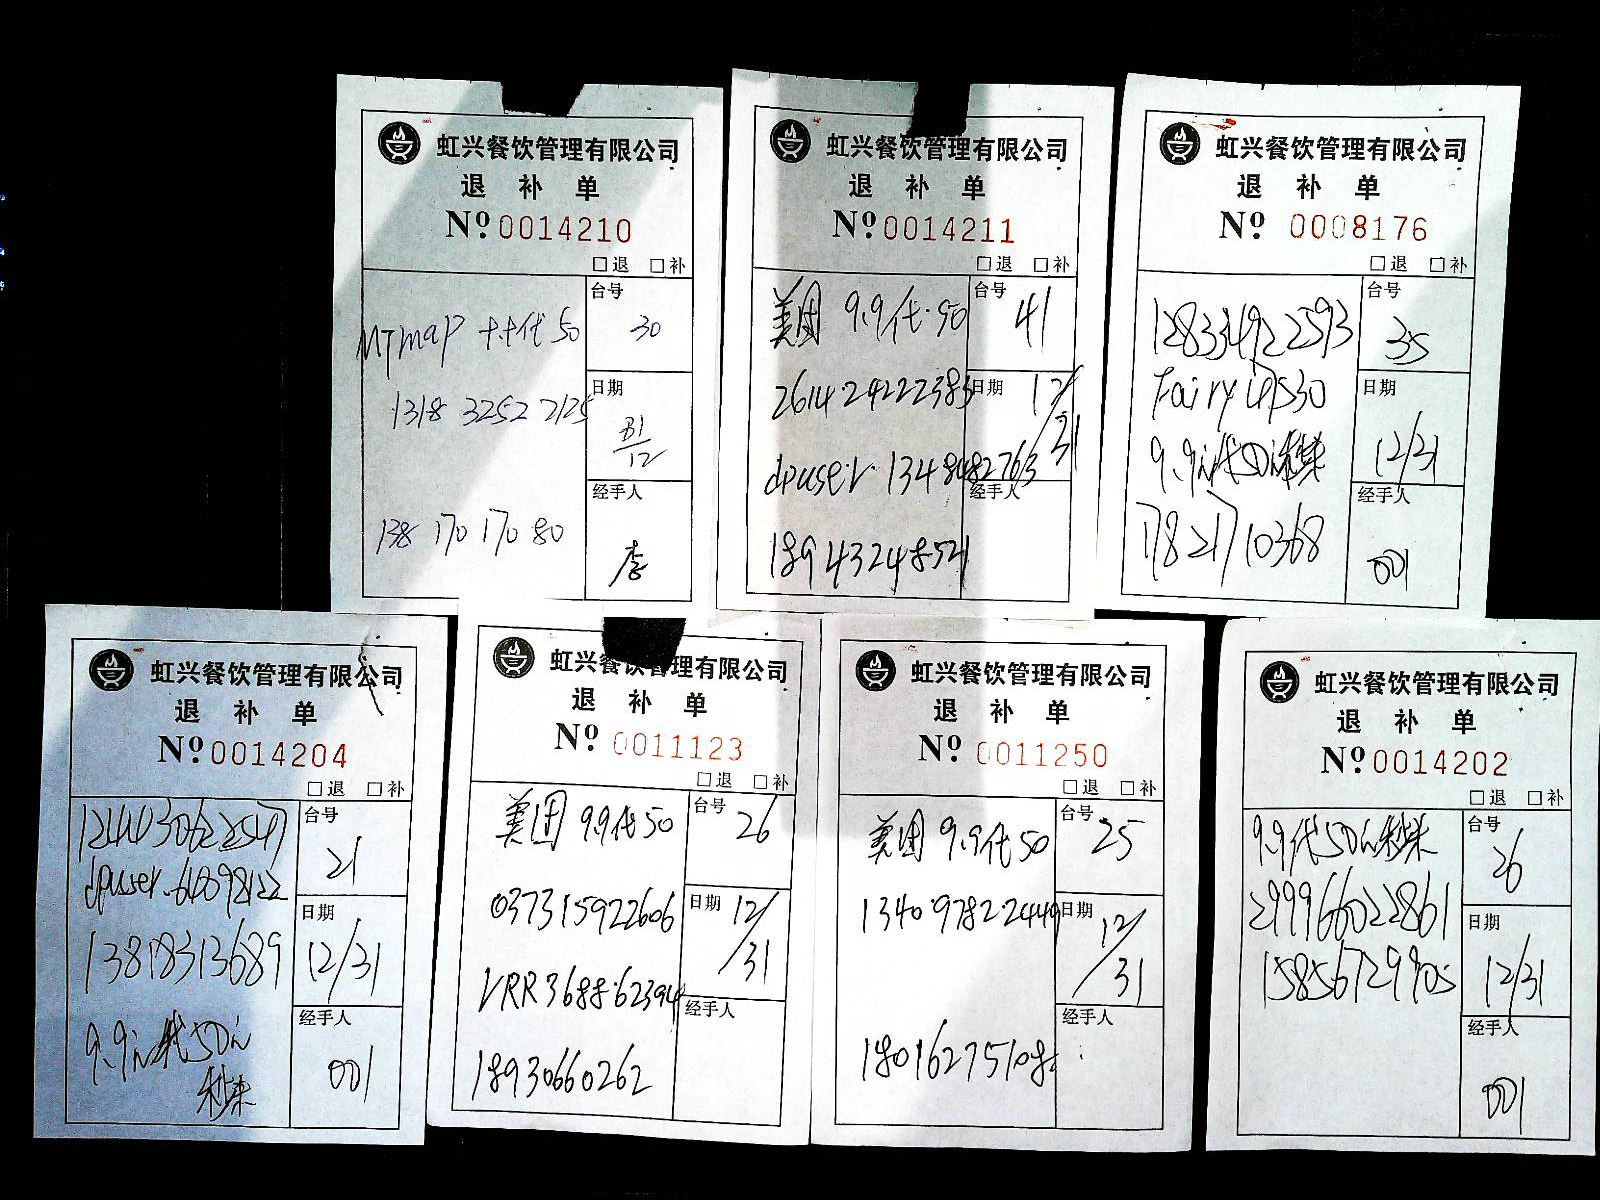 虹兴餐饮管理有限公司
退 补 单
Nº 0014210
□退 □补
台号
30
MTmap 十十代50
1318 3252 2125
日期
31/12
138 170 170 80
经手人
李
虹兴餐饮管理有限公司
退 补 单
Nº 0014211
□退 □补
台号
41
美团 9.9代.50
2614.24222383
日期
12/31
经手人
18943248521
虹兴餐饮管理有限公司
退 补 单
Nº 0008176
□退 □补
台号
35
128334922593
日期
12/31
17821710368
经手人
001
虹兴餐饮管理有限公司
退 补 单
Nº 0014204
□退 □补
台号
21
124430622547
dpuser.640698122
日期
12/31
13818313689
经手人
001
虹兴餐饮管理有限公司
退 补 单
Nº 0011123
□退 □补
台号
26
美团 9.9代50
037315922606
日期
12/31
VRR3688.62394
经手人
18930660262
虹兴餐饮管理有限公司
退 补 单
Nº 0011250
□退 □补
台号
25
美团 9.9代50
1340.9782.2449
日期
12/31
经手人
18016275108
虹兴餐饮管理有限公司
退 补 单
Nº 0014202
□退 □补
台号
26
299966022861
日期
12/31
15856729905
经手人
001